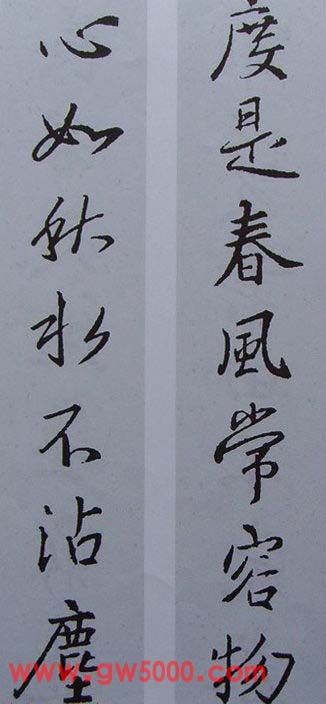 度是春風常容物
心如秋水不沾塵
www.gw5000.com